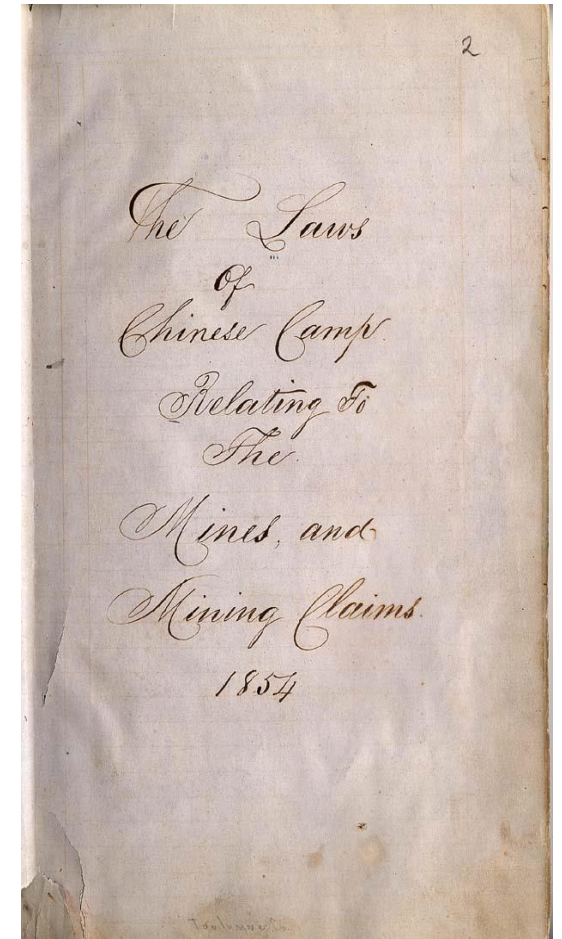 2
The Laws
Of
Chinese Camp.
Relating To
The.
Mines, and
Mining Claims.
1854